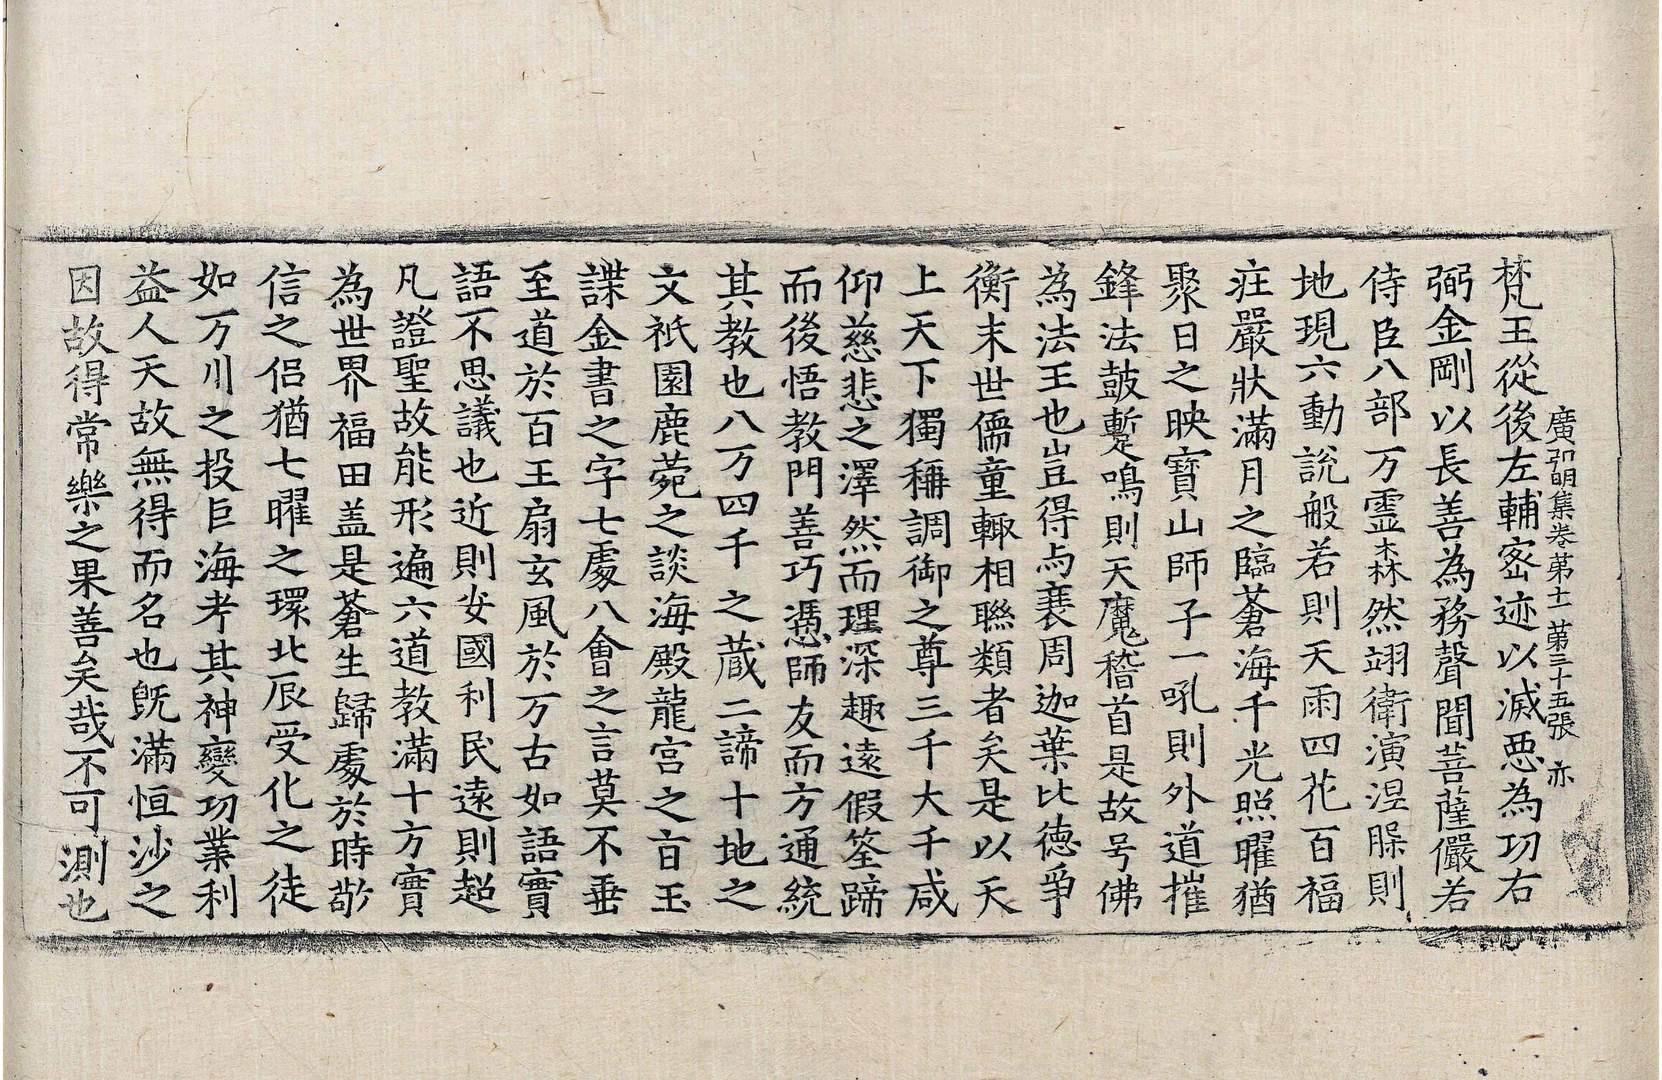 廣弘明集卷第十一 第三十五張 亦
梵王從後左輔密迹以滅惡為功右
弼金剛以長善為務聲聞菩薩儼若
侍臣八部万靈森然翊衛演涅槃則
地現六動說般若則天雨四花百福
莊嚴狀滿月之臨蒼海千光照曜猶
聚日之映寶山師子一吼則外道摧
鋒法鼓蹔鳴則天魔稽首是故号佛
為法王也豈得与衰周迦葉比德爭
衡末世儒童輙相聯類者矣是以天
上天下獨稱調御之尊三千大千咸
仰慈悲之澤然而理深趣遠假筌蹄
而後悟教門善巧憑師友而方通統
其教也八万四千之蔵二諦十地之
文祇園鹿菀之談海殿龍宮之旨玉
諜金書之字七處八會之言莫不垂
至道於百王扇玄風於万古如語實
語不思議也近則安國利民遠則超
凡證聖故能形遍六道教滿十方實
為世界福田盖是蒼生歸處於時敬
信之侶猶七曜之環北辰受化之徒
如万川之投巨海考其神變功業利
益人天故無得而名也旣滿恒沙之
因故得常樂之果善矣哉不可測也